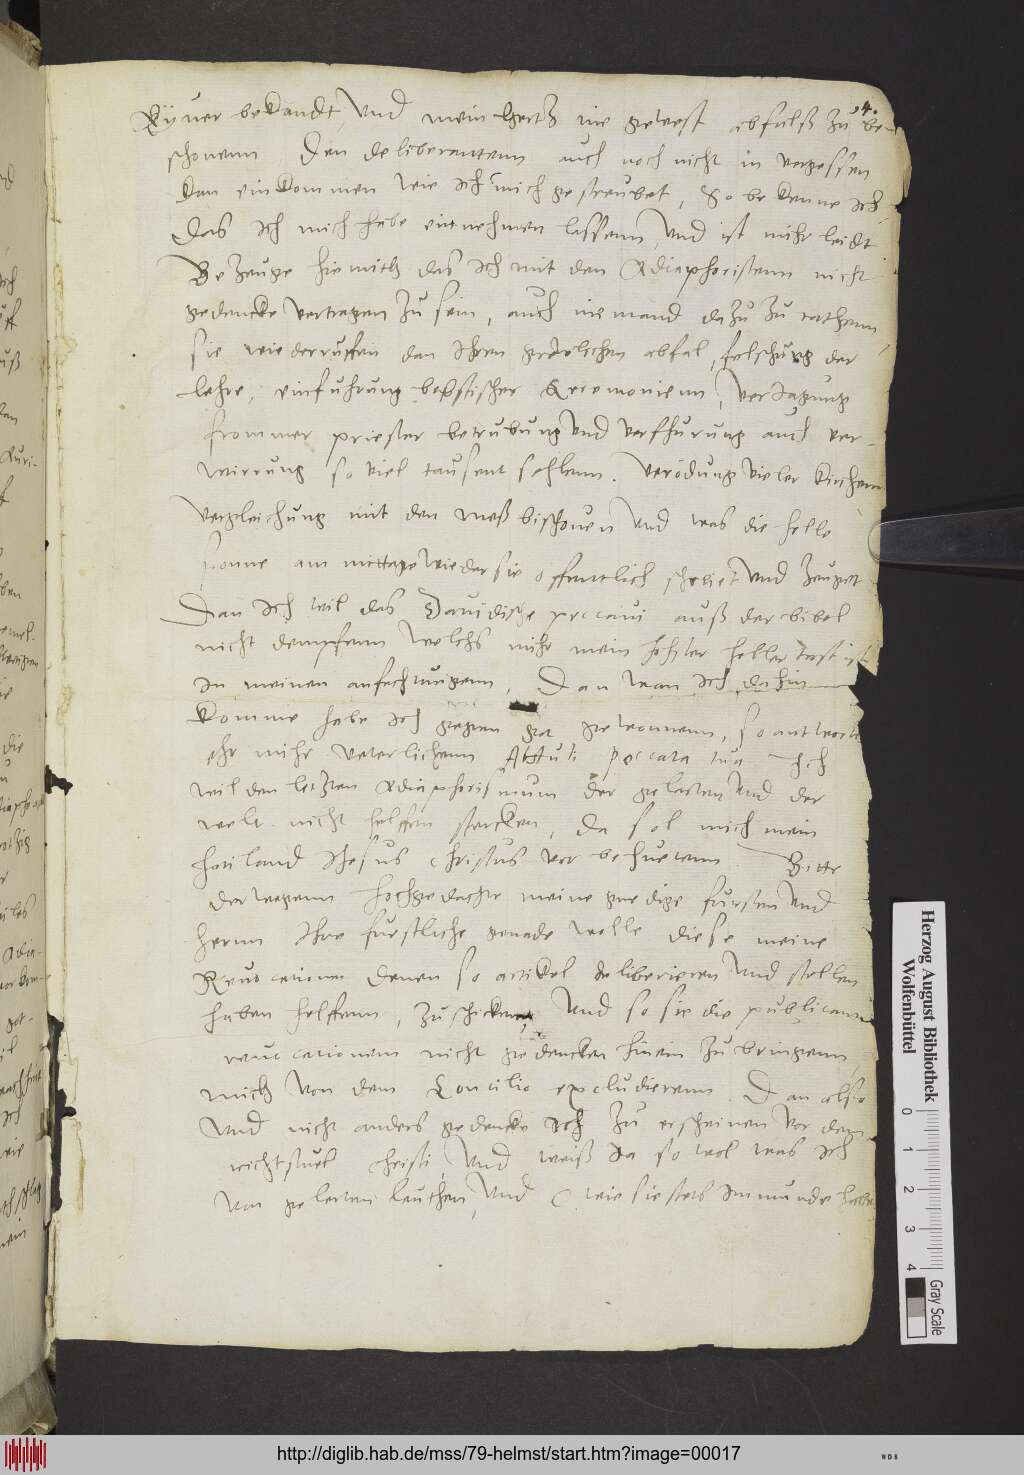 14.
bekandt, Und mein hertz nie gewest abfalß zu be-
schonenn Den deliberantenn auch noch nicht in vergessen
kan einkommen wie Ich mich gestreubet, So bekenne Ich
Das Ich mich habe einnehmen lassenn, Und ist mihr leidt
Bezeuge hiemith das Ich mit den Adiaphoristenn nicht
gedencke vertragen zu sein, auch niemand dazu zu rathenn
sie wiederruffen dan Ihren abfal, felschung der
lehre, einfuhrung bebstischer Ceremonienn, veriagung
frommer priester betrubung Und verfhurung auch ver-
wirrung so viel tausent sehlenn. Verödung vieler kirchenn
Vergleichung mit den meßbischouen Und was die helle
sonne am mittage wieder sie offentlich scheinet Und zeuget
Dan Ich wil das Dauidische peccaui auß der bibel
nicht dempfenn welchs mihr mein hohster heller trost ist
In meinen anfechtungenn, Dan wan Ich dahin
komme habe Ich gegen got gewonnenn, so antwortt
ehr mihr veterlichenn Abstuli peccata tua Ich
wil den letzten Adiaphorismum der gelerten Und der
welt nicht helffen stercken, da sol mich mein
heiland Ihesus Christus vor behuetenn. Bitte
derwegenn hochgedachte meine gnedige fursten Und
hernn Ihre furstliche genade wolle diese meine
Reuocationem denen so artikel deliberieren Und stellen
haben helffenn, zuschicken, Und so sie die publicam
reuocationem nicht gedencken hinein zu bringenn,
mich von dem Concilio excludierenn. Dan also
Und nicht anders gedencke Ich zu erscheinen vor dem
richtstuel Christi, Und weiß Ia so wol was Ich
von gelerten leuthen, Und (wie sie stets Im munde
Herzog August Bibliothek
Wolfenbüttel
0 1 2 3 4
Gray Scale
http://diglib.hab.de/mss/79-helmst/start.htm?image=00017